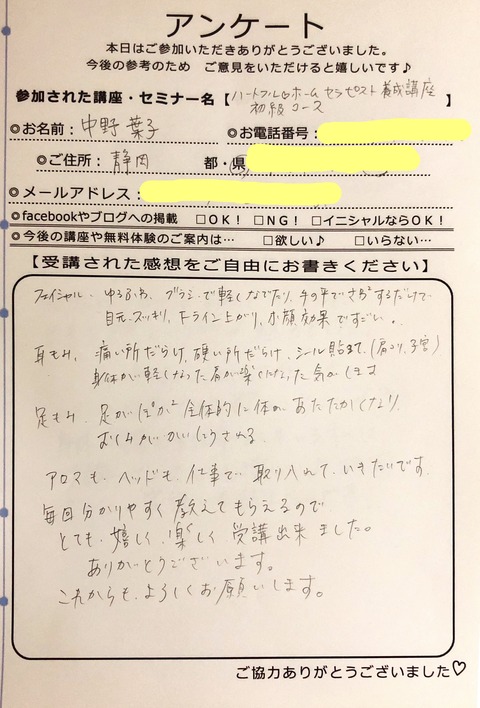 アンケート
本日はご参加いただきありがとうございました。
今後の参考のため ご意見をいただけると嬉しいです♪
参加された講座・セミナー名【ハートフル♡ホームセラピスト養成講座
初級コース】
◎お名前:中野 葉子 ◎お電話番号:
◎ご住所:静岡 都・県
◎メールアドレス:
◎facebookやブログへの掲載 □OK! □NG! □イニシャルならOK!
◎今後の講座や無料体験のご案内は… □欲しい♪ □いらない…
【受講された感想をご自由にお書きください】
フェイシャル、ゆるふわ、ブラシで軽くなでたり、手の平でさするだけで
目元スッキリ、Fライン上がり、小顔効果ですごい。
耳もみ、痛い所だらけ、硬い所だらけ、シール貼まで、(肩コリ、子宮)
身体が軽くなった肩が楽になった気がします
足もみ、足がポカポカ全体的に体があたたかくなり
むくみがかいしょうされる
アロマも、ヘッドも、仕事で取り入れていきたいです。
毎回分かりやすく教えてもらえるので
とても嬉しく、楽しく受講出来ました。
ありがとうございます。
これからも、よろしくお願いします。
ご協力ありがとうございました♡